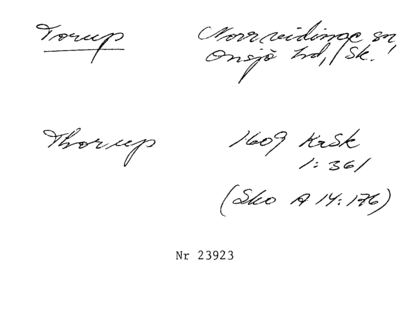 Torup Norrvidinge sn,
Onsjö hd, Sk.
Thorup 1609 KrSk
1:361
(Sko A 14:176)
Nr 23923